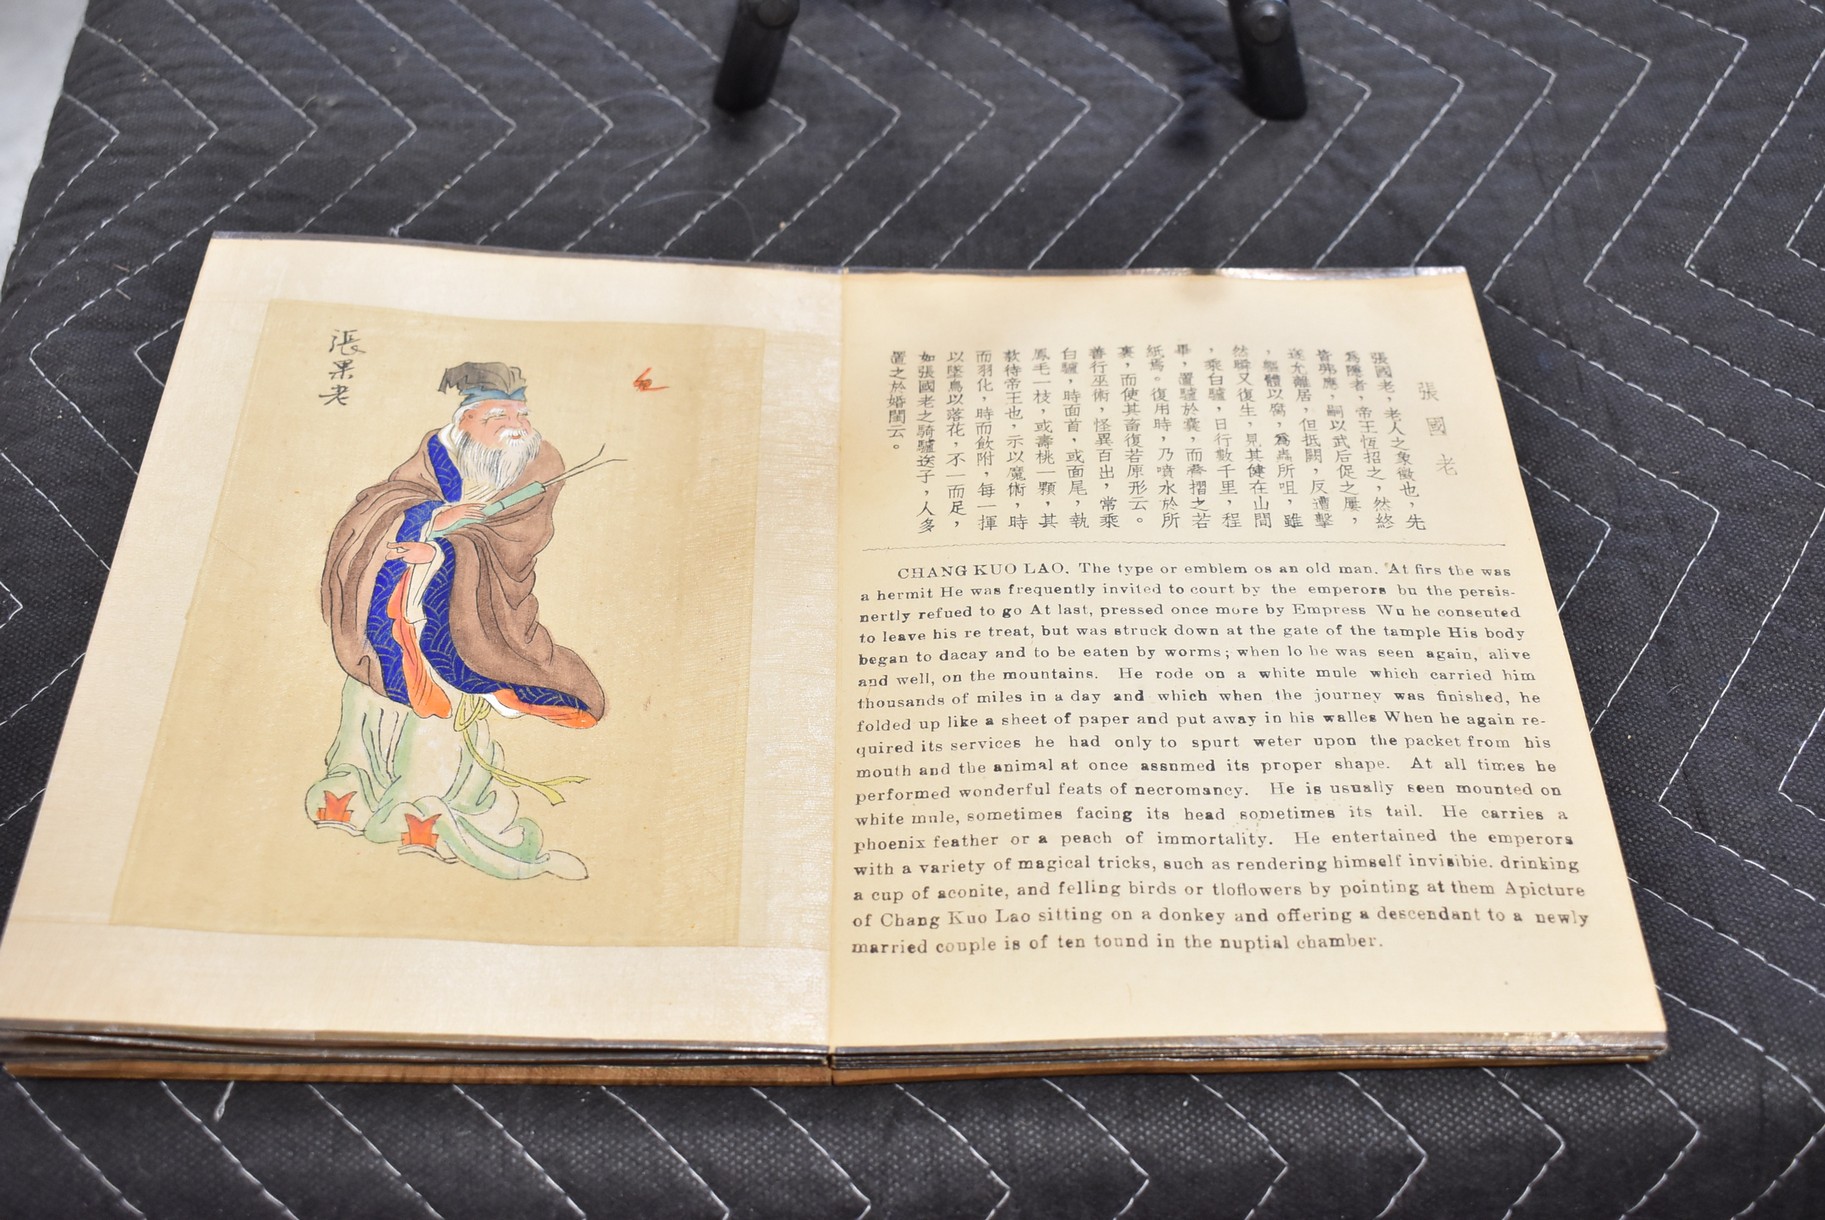 張果老
張國老
張國老，老人之象徵也，先
爲隱者，帝王恆招之，然終
皆弗應，嗣以武后促之屢，
遂允離居，但抵闕，反遭擊
，軀體以腐，爲蟲所咀，雖
然瞬又復生，見其健在山間
，乘白驢，日行數千里，程
畢，置驢於囊，而摺之若
紙焉。復用時，乃噴水於所
裹，而使其畜復若原形云。
善行巫術，怪異百出，常乘
白驢，時面首，或面尾，執
鳳毛一枝，或壽桃一顆，其
欵待帝王也，示以魔術，時
而羽化，時而飲附，每一揮
以墜鳥以落花，不一而足，
如張國老之騎驢送子，人多
置之於婚闈云。
CHANG KUO LAO. The type or emblem os an old man. At firs the was
a hermit He was frequently invited to court by the emperors bu the persis-
nertly refued to go At last, pressed once more by Empress Wu he consented
to leave his re treat, but was struck down at the gate of the tample His body
began to dacay and to be eaten by worms; when lo he was seen again, alive
and well, on the mountains. He rode on a white mule which carried him
thousands of miles in a day and which when the journey was finished, he
folded up like a sheet of paper and put away in his walles When he again re-
quired its services he had only to spurt weter upon the packet from his
mouth and the animal at once assnmed its proper shape. At all times he
performed wonderful feats of necromancy. He is usually seen mounted on
white mule, sometimes facing its head sometimes its tail. He carries a
phoenix feather or a peach of immortality. He entertained the emperors
with a variety of magical tricks, such as rendering himself invisibie. drinking
a cup of aconite, and felling birds or tloflowers by pointing at them Apicture
of Chang Kuo Lao sitting on a donkey and offering a descendant to a newly
married couple is of ten tound in the nuptial chamber.